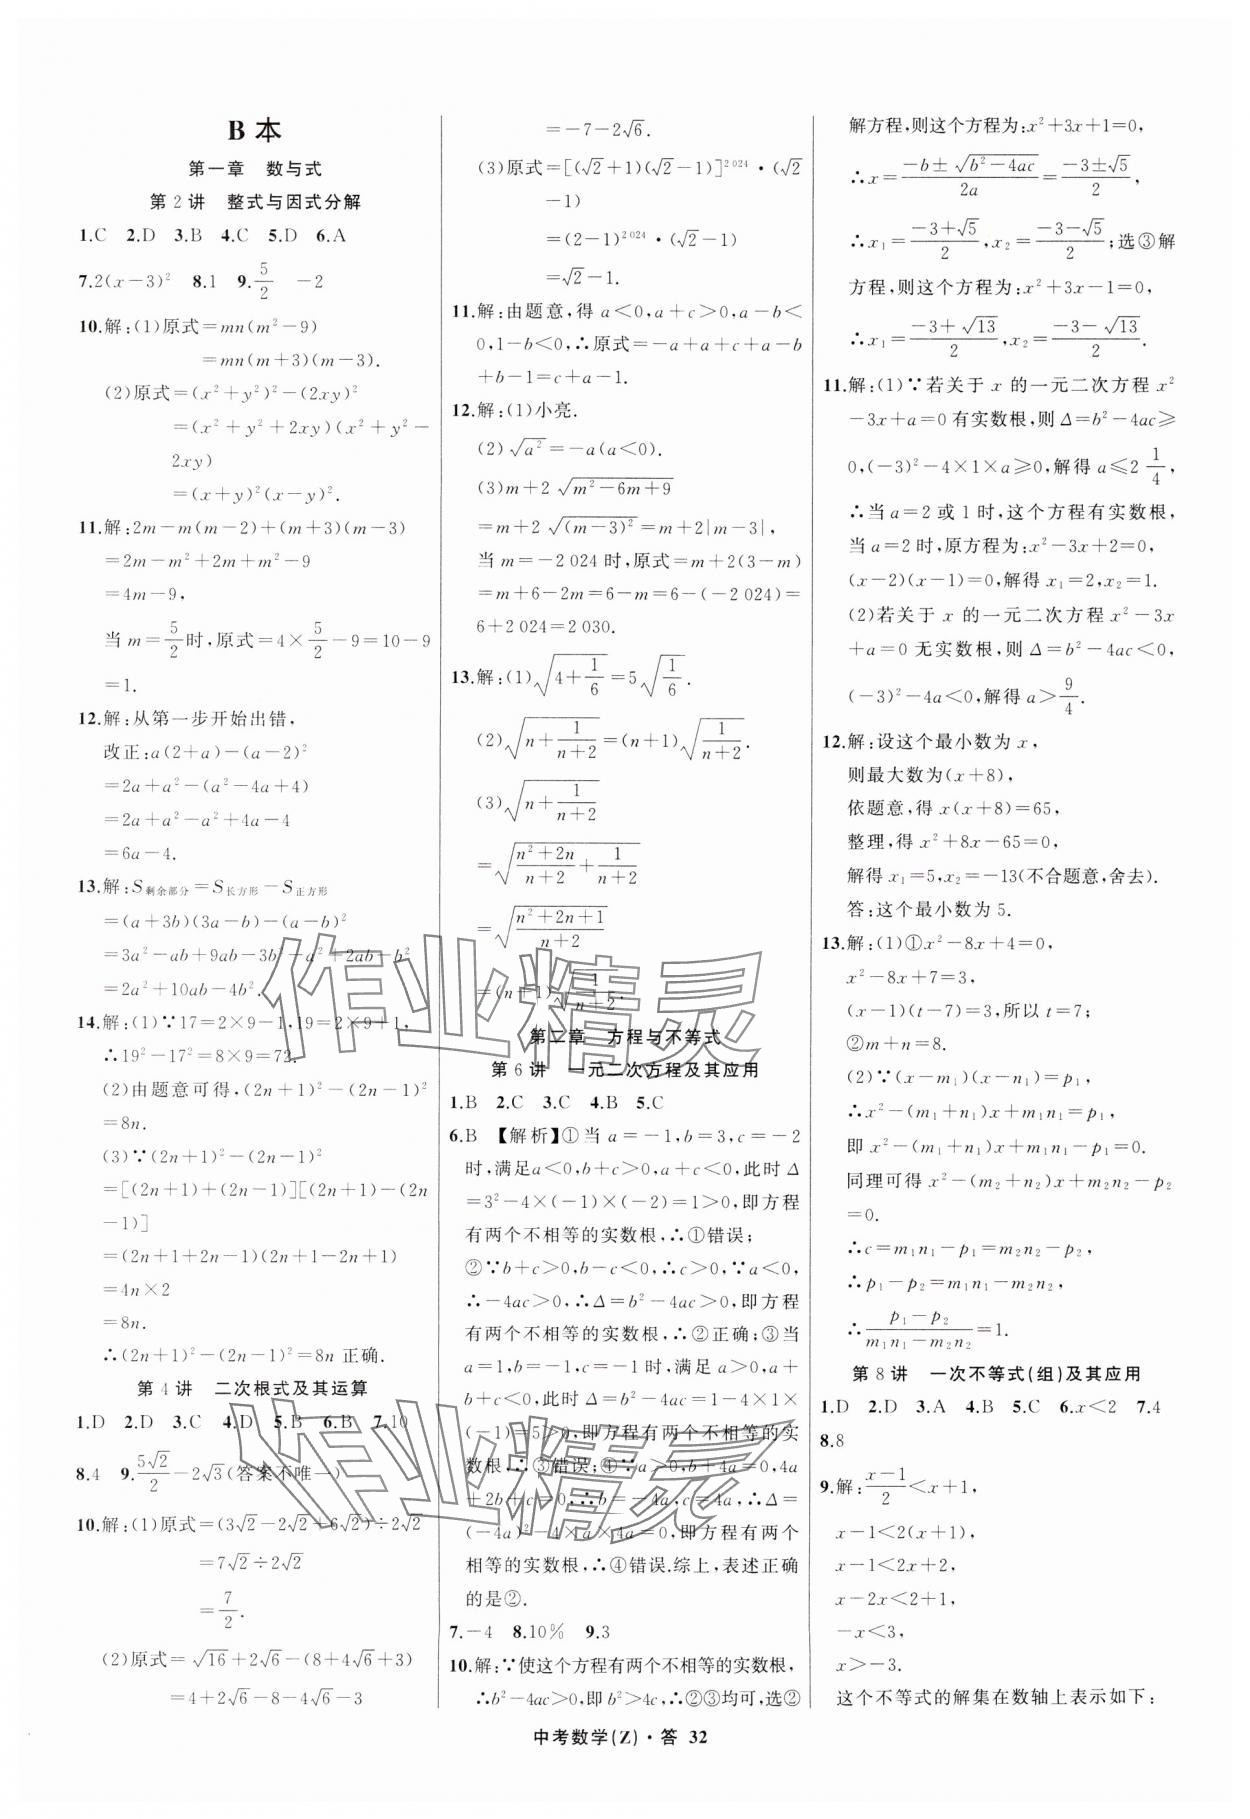 B 本
第一章 数与式
第 2 讲 整式与因式分解
1.C 2.D 3.B 4.C 5.D 6.A
7.2(x-3)² 8.1 9.5/2 -2
10.解:(1)原式=mn(m²-9)
=mn(m+3)(m-3).
(2)原式=(x²+y²)²-(2xy)²
=(x²+y²+2xy)(x²+y²-
2xy)
=(x+y)²(x-y)².
11.解:2m-m(m-2)+(m+3)(m-3)
=2m-m²+2m+m²-9
=4m-9,
当 m=5/2时,原式=4×5/2-9=10-9
=1.
12.解:从第一步开始出错,
改正:a(2+a)-(a-2)²
=2a+a²-(a²-4a+4)
=2a+a²-a²+4a-4
=6a-4.
13.解:S剩余部分=S长方形-S正方形
=(a+3b)(3a-b)-(a-b)²
=3a²-ab+9ab-3b²-a²+2ab-b²
=2a²+10ab-4b².
14.解:(1)∵17=2×9-1,19=2×9+1,
∴19²-17²=8×9=72.
(2)由题意可得,(2n+1)²-(2n-1)²
=8n.
(3)∵(2n+1)²-(2n-1)²
=[(2n+1)+(2n-1)][(2n+1)-(2n
-1)]
=(2n+1+2n-1)(2n+1-2n+1)
=4n×2
=8n.
∴(2n+1)²-(2n-1)²=8n 正确.
第 4 讲 二次根式及其运算
1.D 2.D 3.C 4.D 5.B 6.B 7.10
8.4 9.5√2/2-2√3(答案不唯一)
10.解:(1)原式=(3√2-2√2+6√2)÷2√2
=7√2÷2√2
=7/2.
(2)原式=√16+2√6-(8+4√6+3)
=4+2√6-8-4√6-3
=-7-2√6.
(3)原式=[(√2+1)(√2-1)]²⁰²⁴·(√2
-1)
=(2-1)²⁰²⁴·(√2-1)
=√2-1.
11.解:由题意,得 a<0,a+c>0,a-b<
0,1-b<0,∴原式=-a+a+c+a-b
+b-1=c+a-1.
12.解:(1)小亮.
(2)√a²=-a(a<0).
(3)m+2√(m²-6m+9)
=m+2√(m-3)²=m+2|m-3|,
当 m=-2 024时,原式=m+2(3-m)
=m+6-2m=6-m=6-(-2 024)=
6+2 024=2 030.
13.解:(1)√(4+1/6)=5√(1/6).
(2)√(n+1/(n+2))=(n+1)√(1/(n+2)).
(3)√(n+1/(n+2))
=√((n²+2n)/(n+2)+1/(n+2))
=√((n²+2n+1)/(n+2))
=(n+1)√(1/(n+2)).
第二章 方程与不等式
第 6 讲 一元二次方程及其应用
1.B 2.C 3.C 4.B 5.C
6.B 【解析】①当 a=-1,b=3,c=-2
时,满足a<0,b+c>0,a+c<0,此时 Δ
=3²-4×(-1)×(-2)=1>0,即方程
有两个不相等的实数根,∴①错误;
②∵b+c>0,b-c<0,∴c>0,∵a<0,
∴-4ac>0,∴Δ=b²-4ac>0,即方程
有两个不相等的实数根,∴②正确;③当
a=1,b=-1,c=-1时,满足a>0,a+
b+c<0,此时Δ=b²-4ac=1-4×1×
(-1)=5>0,即方程有两个不相等的实
数根,∴③错误;④∵a>0,b+4a=0,4a
+2b+c=0,∴b=-4a,c=4a,∴Δ=
(-4a)²-4×a×4a=0,即方程有两个
相等的实数根,∴④错误.综上,表述正确
的是②.
7.-4 8.10% 9.3
10.解:∵使这个方程有两个不相等的实数根,
∴b²-4ac>0,即 b²>4c,∴②③均可,选②
解方程,则这个方程为:x²+3x+1=0,
∴x=(-b±√(b²-4ac))/2a=(-3±√5)/2,
∴x₁=(-3+√5)/2,x₂=(-3-√5)/2;选③解
方程,则这个方程为:x²+3x-1=0,
∴x₁=(-3+√13)/2,x₂=(-3-√13)/2.
11.解:(1)∵若关于 x 的一元二次方程 x²
-3x+a=0 有实数根,则 Δ=b²-4ac≥
0,(-3)²-4×1×a≥0,解得 a≤2 1/4,
∴当 a=2 或 1 时,这个方程有实数根,
当 a=2时,原方程为:x²-3x+2=0,
(x-2)(x-1)=0,解得 x₁=2,x₂=1.
(2)若关于 x 的一元二次方程 x²-3x
+a=0 无实数根,则 Δ=b²-4ac<0,
(-3)²-4a<0,解得 a>9/4.
12.解:设这个最小数为 x,
则最大数为(x+8),
依题意,得 x(x+8)=65,
整理,得 x²+8x-65=0,
解得 x₁=5,x₂=-13(不合题意,舍去).
答:这个最小数为 5.
13.解:(1)①x²-8x+4=0,
x²-8x+7=3,
(x-1)(t-7)=3,所以 t=7;
②m+n=8.
(2)∵(x-m₁)(x-n₁)=p₁,
∴x²-(m₁+n₁)x+m₁n₁=p₁,
即 x²-(m₁+n₁)x+m₁n₁-p₁=0.
同理可得 x²-(m₂+n₂)x+m₂n₂-p₂
=0.
∴c=m₁n₁-p₁=m₂n₂-p₂,
∴p₁-p₂=m₁n₁-m₂n₂,
∴(p₁-p₂)/(m₁n₁-m₂n₂)=1.
第 8 讲 一次不等式(组)及其应用
1.D 2.D 3.A 4.B 5.C 6.x<2 7.4
8.8
9.解:(x-1)/2<x+1,
x-1<2(x+1),
x-1<2x+2,
x-2x<2+1,
-x<3,
x>-3.
这个不等式的解集在数轴上表示如下:
中考数学(Z)·答 32
作业精灵
作业精灵